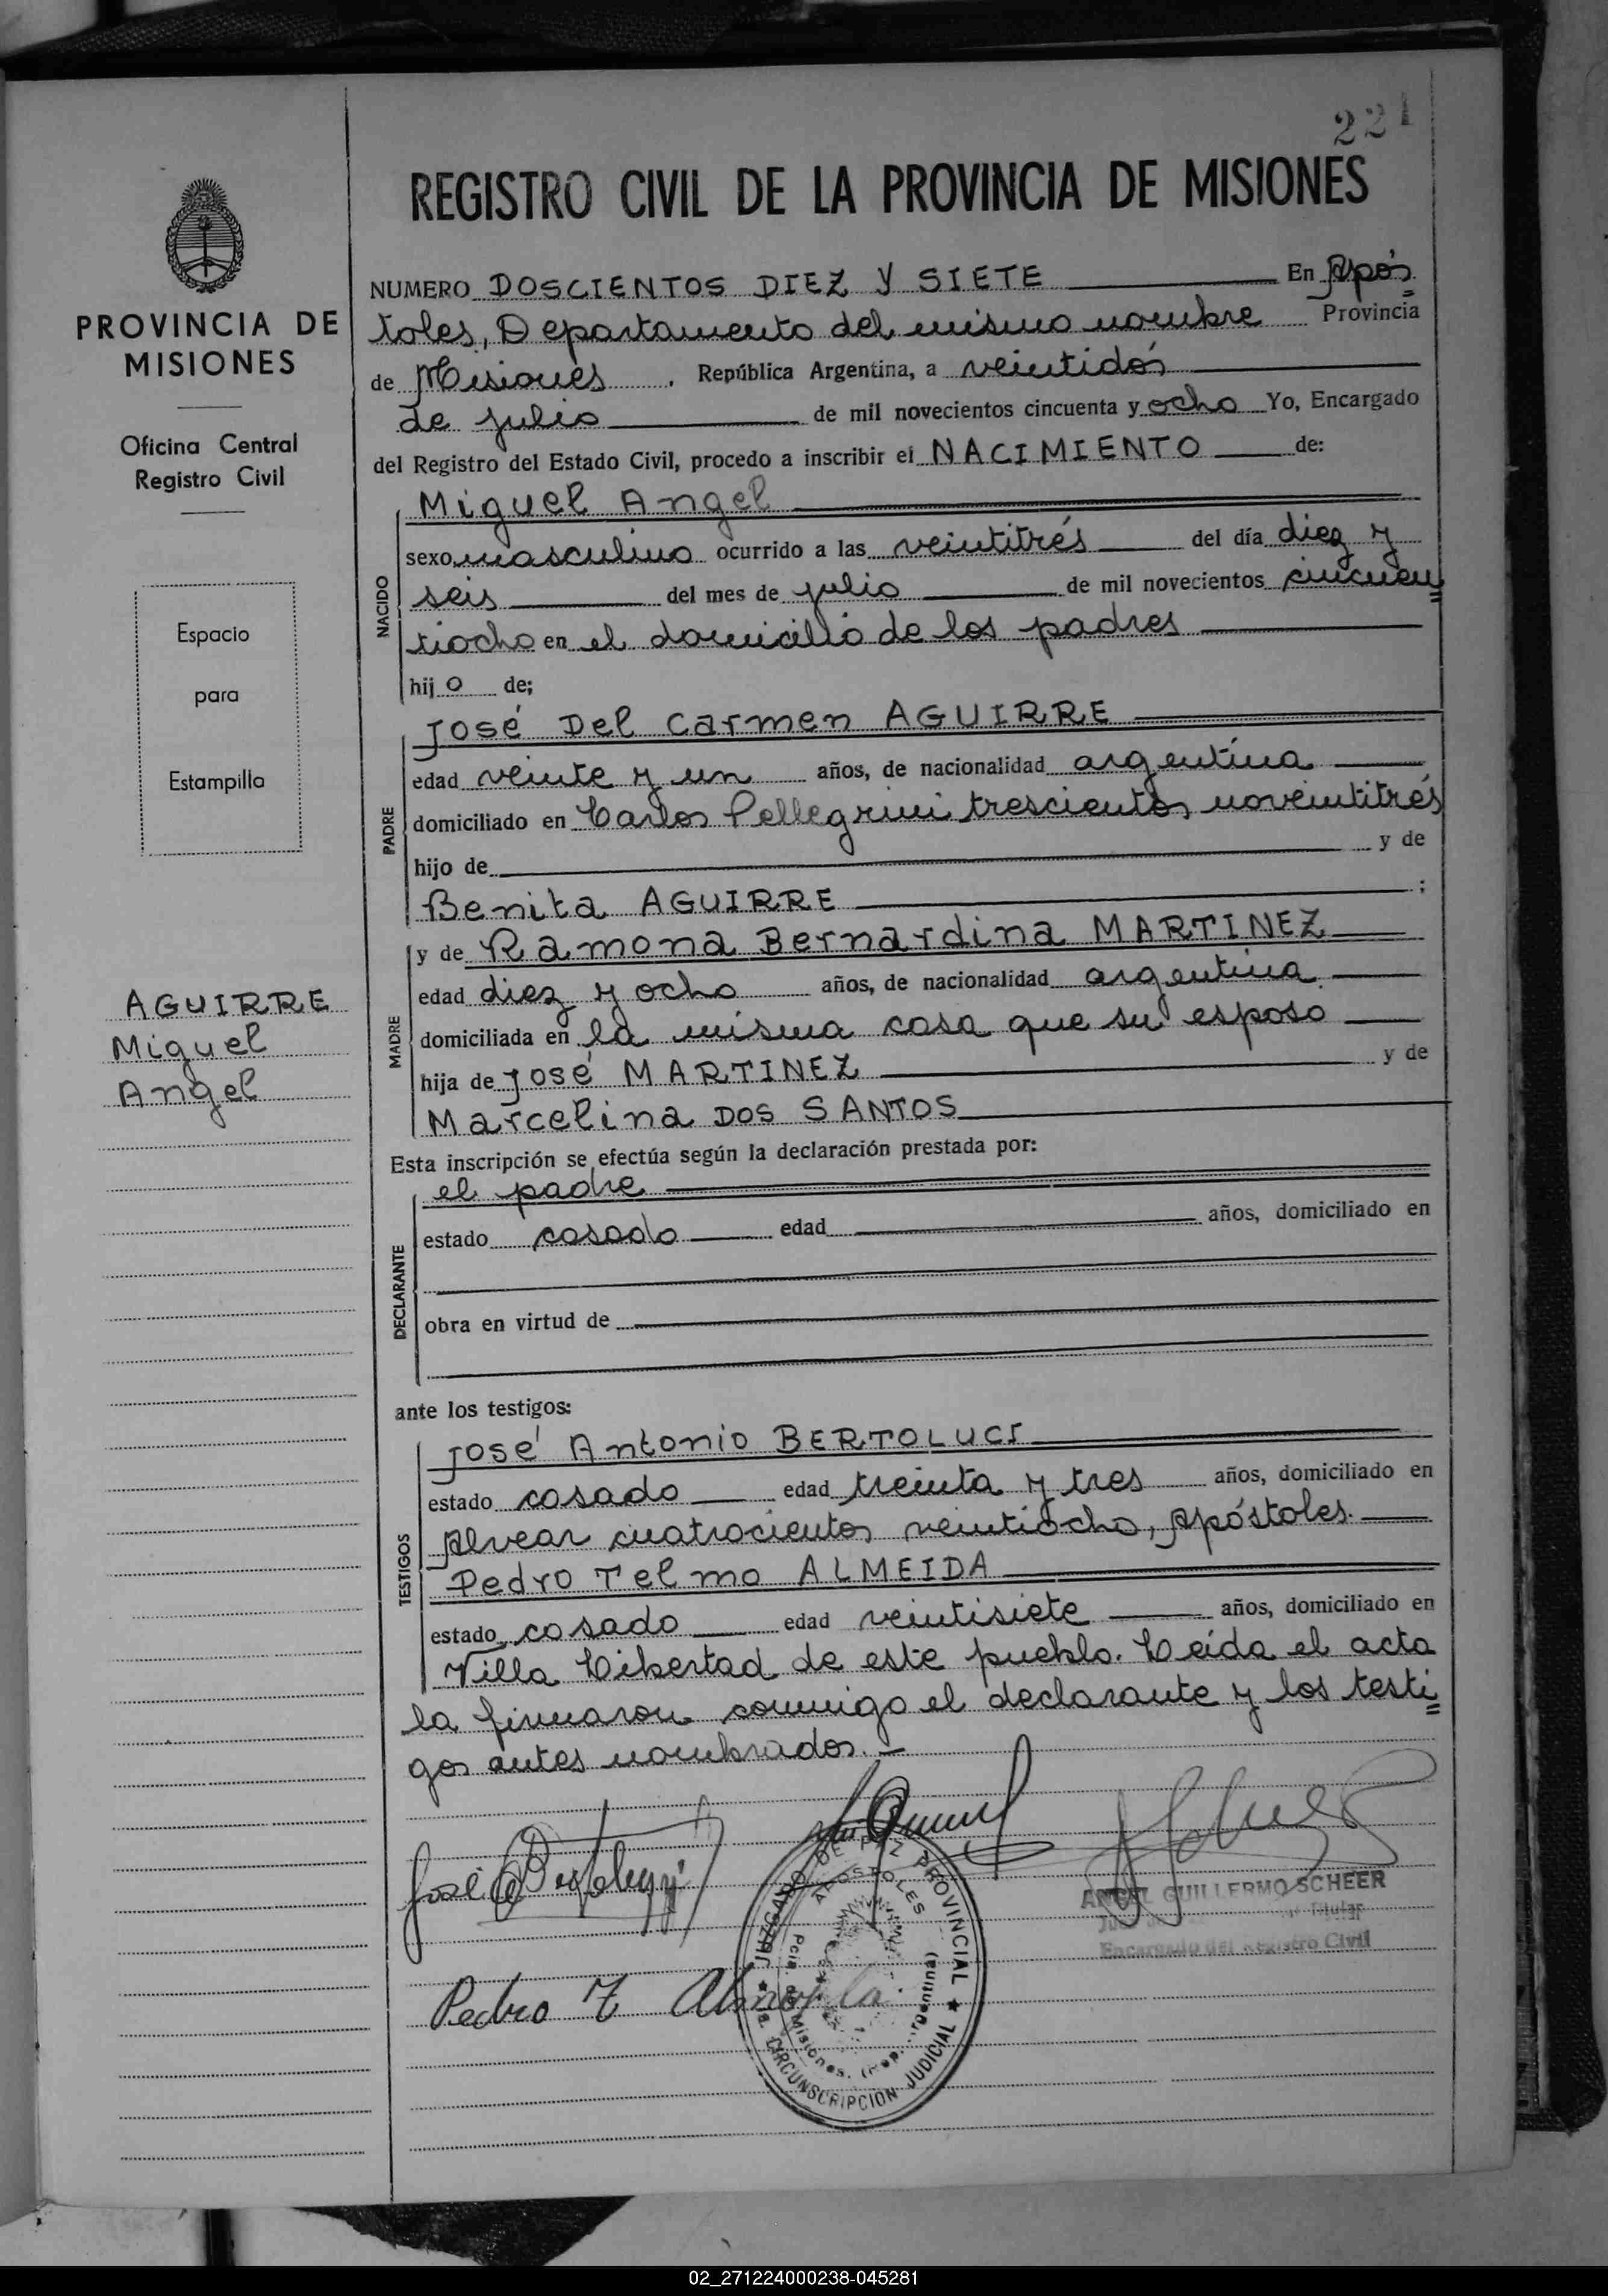 221
REGISTRO CIVIL DE LA PROVINCIA DE MISIONES
PROVINCIA DE
MISIONES
Oficina Central
Registro Civil
Espacio
para
Estampilla
AGUIRRE
Miguel
Angel
NUMERO DOSCIENTOS DIEZ Y SIETE En Após=
toles, Departamento del mismo nombre Provincia
de Misiones, República Argentina, a veintidós
de julio de mil novecientos cincuenta y ocho Yo, Encargado
del Registro del Estado Civil, procedo a inscribir el NACIMIENTO de:
NACIDO
Miguel Angel
sexo masculino ocurrido a las veintitrés del día diez y
seis del mes de julio de mil novecientos cincuen=
tiocho en el domicilio de los padres
hijo de;
PADRE
José Del Carmen AGUIRRE
edad veinte y un años, de nacionalidad argentina
domiciliado en Carlos Pellegrini trescientos noventitrés
hijo de y de
Benita AGUIRRE ;
MADRE
y de Ramona Bernardina MARTINEZ
edad diez y ocho años, de nacionalidad argentina
domiciliada en la misma casa que su esposo
hija de José MARTINEZ y de
Marcelina DOS SANTOS
Esta inscripción se efectúa según la declaración prestada por:
DECLARANTE
el padre
estado casado edad años, domiciliado en
obra en virtud de
ante los testigos:
TESTIGOS
José Antonio BERTOLUCI
estado casado edad treinta y tres años, domiciliado en
Alvear cuatrocientos veintiocho, Apóstoles.
Pedro Telmo ALMEIDA
estado casado edad veintisiete años, domiciliado en
Villa Libertad de este pueblo. Leída el acta
la firmaron conmigo el declarante y los testi=
gos antes nombrados.-
José A
ANGEL GUILLERMO SCHEER
Titular
Encargado del Registro Civil
Pedro T Almeida
JUZGADO DE PAZ PROVINCIAL
APOSTOLES
Pcia. de Misiones. (Rep. Argentina)
CIRCUNSCRIPCION JUDICIAL
02_271224000238-045281